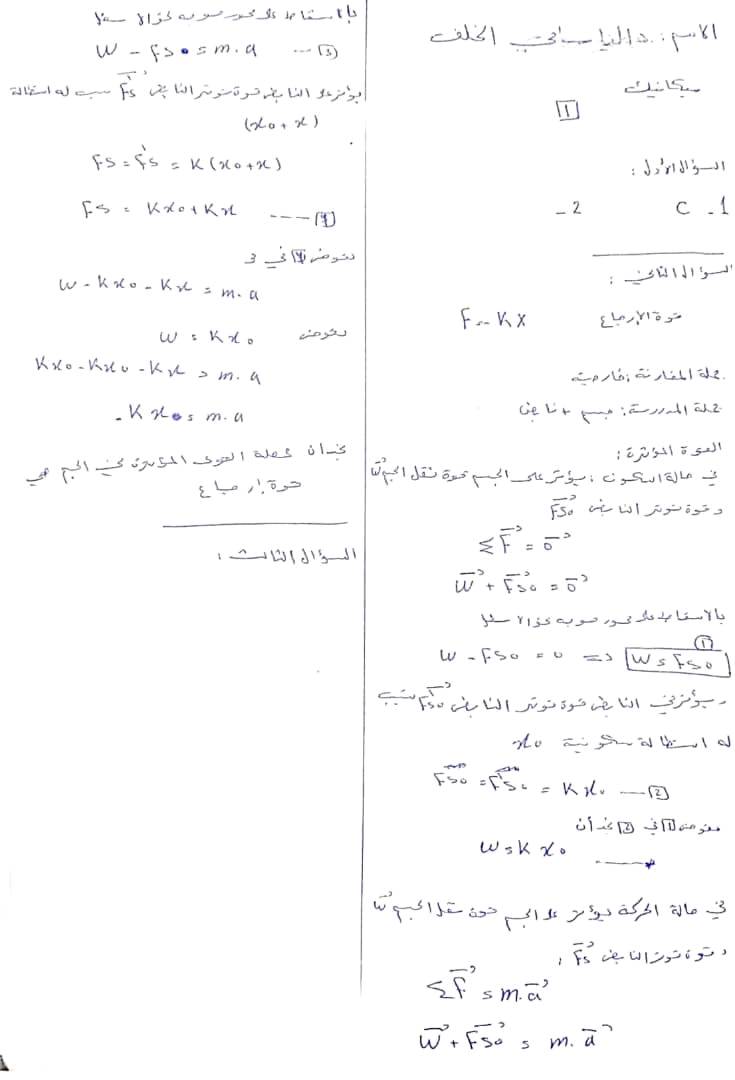 الاسم : داليا سامي الخلف
ميكانيك
1
السؤال الأول :
1 - C    2 -
السؤال الثاني :
قوة الإرجاع F = - K X
جملة المقارنة : خارجية
جملة المدروسة : جسم + نابض
القوة المؤثرة :
في حالة السكون : يؤثر على الجسم قوة ثقل الجسم W
وقوة توتر النابض Fs0
ΣF = 0
W + Fs0 = 0
بالاسقاط على محور موجه نحو الاسفل
W - Fs0 = 0 => W = Fs0 (1)
- يؤثر في النابض قوة توتر النابض F's0 تسبب
له استطالة سكونية x0
Fs0 = F's0 = K x0 --- [2]
نعوض [1] في [2] نجد أن
W = K x0
في حالة الحركة يؤثر على الجسم قوة ثقل الجسم W
وقوة توتر النابض Fs :
ΣF = m.a
W + Fs0 = m.a
بالاسقاط على محور موجه نحو الاسفل
W - Fs0 = m.a --- (3)
يؤثر على النابض قوة توتر النابض F's تسبب له استطالة
(x0 + x)
Fs = F's = K(x0+x)
Fs = Kx0 + Kx ---- [4]
نعوض [4] في 3
W - Kx0 - Kx = m.a
نعوض W = Kx0
Kx0 - Kx0 - Kx = m.a
- Kx0 = m.a
نجد أن محصلة القوى المؤثرة في الجسم هي
قوة إرجاع
السؤال الثالث :